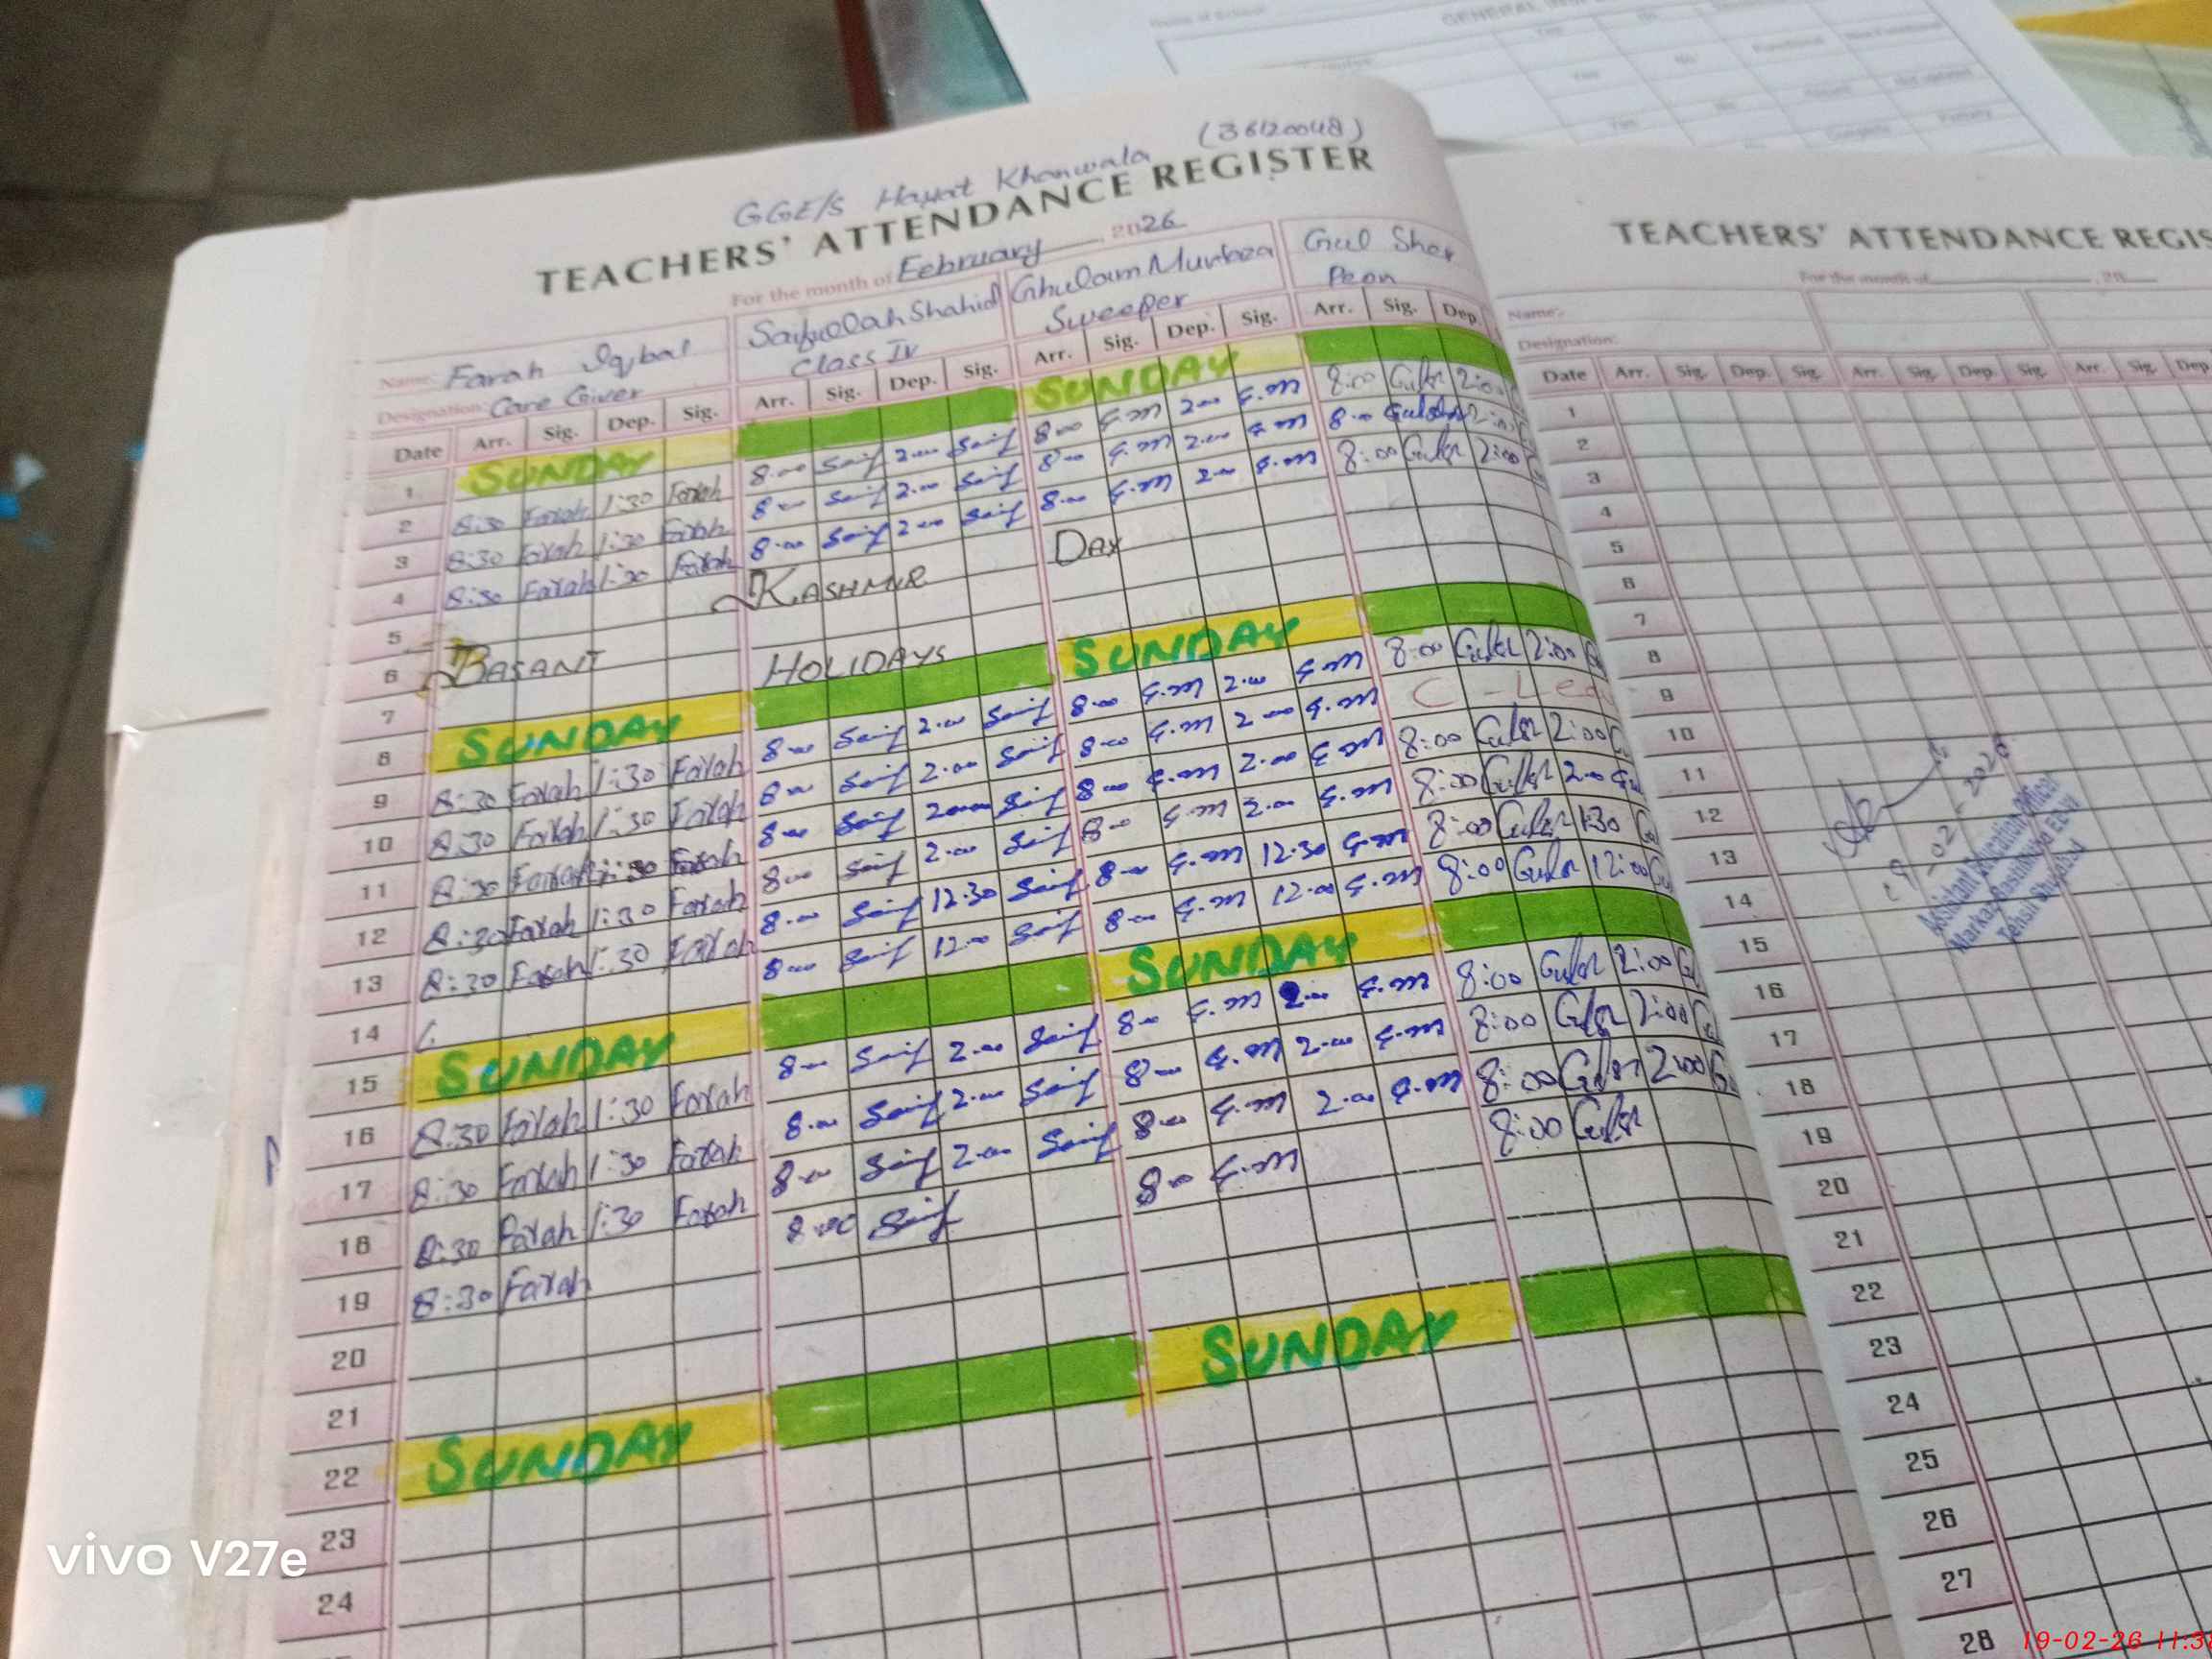 GGE/S Hayat Khanwala (36120048)
TEACHERS' ATTENDANCE REGISTER
For the month of February, 2026
Name: Farah Iqbal Saifullah Shahid Ghulam Murtaza Gul Sher
Designation: Care Giver Class IV Sweeper Peon
Date Arr. Sig. Dep. Sig. Arr. Sig. Dep. Sig. Arr. Sig. Dep. Sig. Arr. Sig. Dep.
1 SUNDAY SUNDAY
2 8:30 Farah 1:30 Farah 8:00 Saif 2:00 Saif 8:00 G.M 2:00 G.M 8:00 Gulsr 2:00
3 8:30 Farah 1:30 Farah 8:00 Saif 2:00 Saif 8:00 G.M 2:00 G.M 8:00 2:00
4 8:30 Farah 1:30 Farah 8:00 Saif 2:00 Saif 8:00 G.M 2:00 G.M 8:00 Gulsr 2:00
5 KASHMIR DAY
6 BASANT HOLIDAYS
7
8 SUNDAY SUNDAY
9 8:30 Farah 1:30 Farah 8:00 Saif 2:00 Saif 8:00 G.M 2:00 G.M 8:00 Gulsr 2:00
10 8:30 Farah 1:30 Farah 8:00 Saif 2:00 Saif 8:00 G.M 2:00 G.M C-Lea
11 8:30 Farah 1:30 Farah 8:00 Saif 2:00 Saif 8:00 G.M 2:00 G.M 8:00 Gulsr 2:00
12 8:30 Farah 1:30 Farah 8:00 Saif 2:00 Saif 8:00 G.M 2:00 G.M 8:00 Gulsr 2:00
13 8:30 Farah 1:30 Farah 8:00 Saif 12:30 Saif 8:00 G.M 12:30 G.M 8:00 Gulsr 1:30
14 8:00 Saif 12:00 Saif 8:00 G.M 12:00 G.M 8:00 Gulsr 12:00
15 SUNDAY SUNDAY
16 8:30 Farah 1:30 Farah 8:00 Saif 2:00 Saif 8:00 G.M 2:00 G.M 8:00 Gulsr 2:00
17 8:30 Farah 1:30 Farah 8:00 Saif 2:00 Saif 8:00 G.M 2:00 G.M 8:00 Gulsr 2:00
18 8:30 Farah 1:30 Farah 8:00 Saif 2:00 Saif 8:00 G.M 2:00 G.M 8:00 Gulsr 2:00
19 8:30 Farah 8:00 Saif 8:00 G.M 8:00 Gulsr
20
21
22 SUNDAY SUNDAY
23
24
TEACHERS' ATTENDANCE REGIS
For the month of , 20
Name:
Designation:
Date Arr. Sig. Dep. Sig. Arr. Sig. Dep. Sig. Arr. Sig. Dep
1
2
3
4
5
6
7
8
9
10
11
12
13
14
15
16
17
18
19
20
21
22
23
24
25
26
27
28
19-02-2026
Assistant Education Officer
Markaz
Tehsil
vivo V27e
19-02-26 11:3